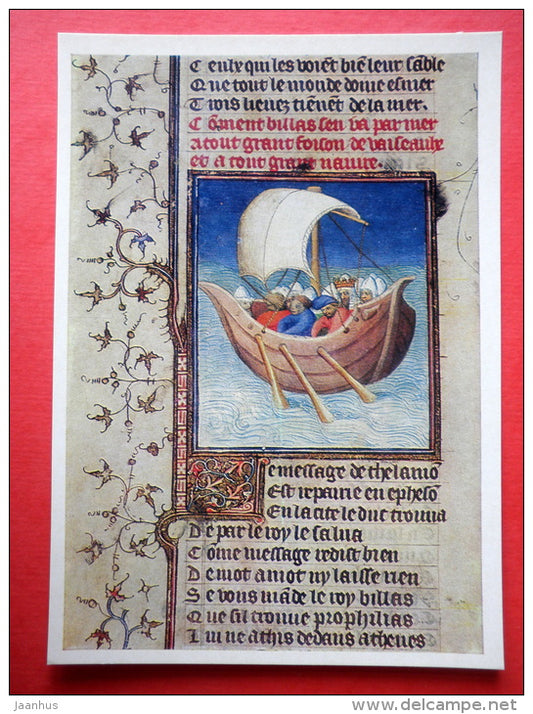 Ceuly qui les voiēt biē leur sāble
Que tout le monde doiue esmer
Trois lieuez tiēnēt de la mer.
Cōment billas sen va par mer
a tout grant foison de vaiseaulx
et a tout grant nauire.
e message de thelamō
Est repairie en ephesō
En la cite le duc trouua
De par le roy le salua
Cōme message redist bien
De mot a mot ny laisse rien
Se vous māde le roy billas
Que sil trouue prophilias
Lui ne athis dedans athenes
Jaanhus
www.delcampe.net